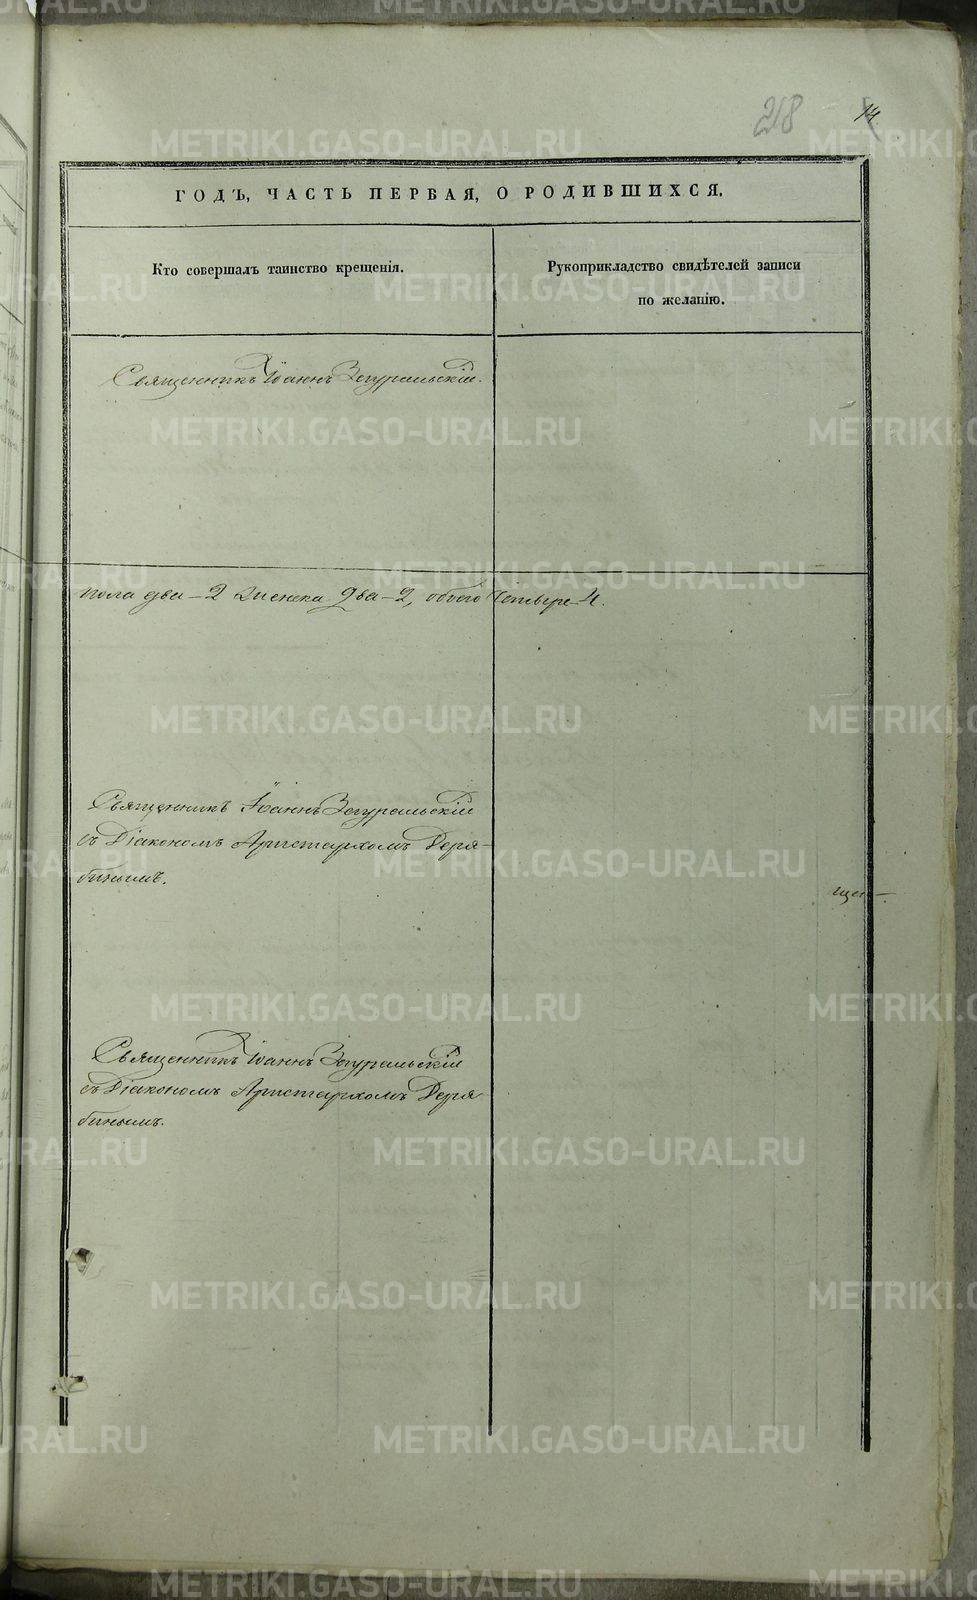 218
14
ГОДЪ, ЧАСТЬ ПЕРВАЯ, О РОДИВШИХСЯ.
Кто совершалъ таинство крещенія.
Рукоприкладство свидѣтелей записи
по желанію.
Священникъ Іоаннъ Загуральскій.
пола два - 2 женска два - 2, обоего четыре 4.
Священникъ Іоаннъ Загуральскій
съ Діакономъ Аристархомъ Деря-
бинымъ.
Священникъ Іоаннъ Загуральскій
съ Діакономъ Аристархомъ Деря-
бинымъ.
METRIKI.GASO-URAL.RU